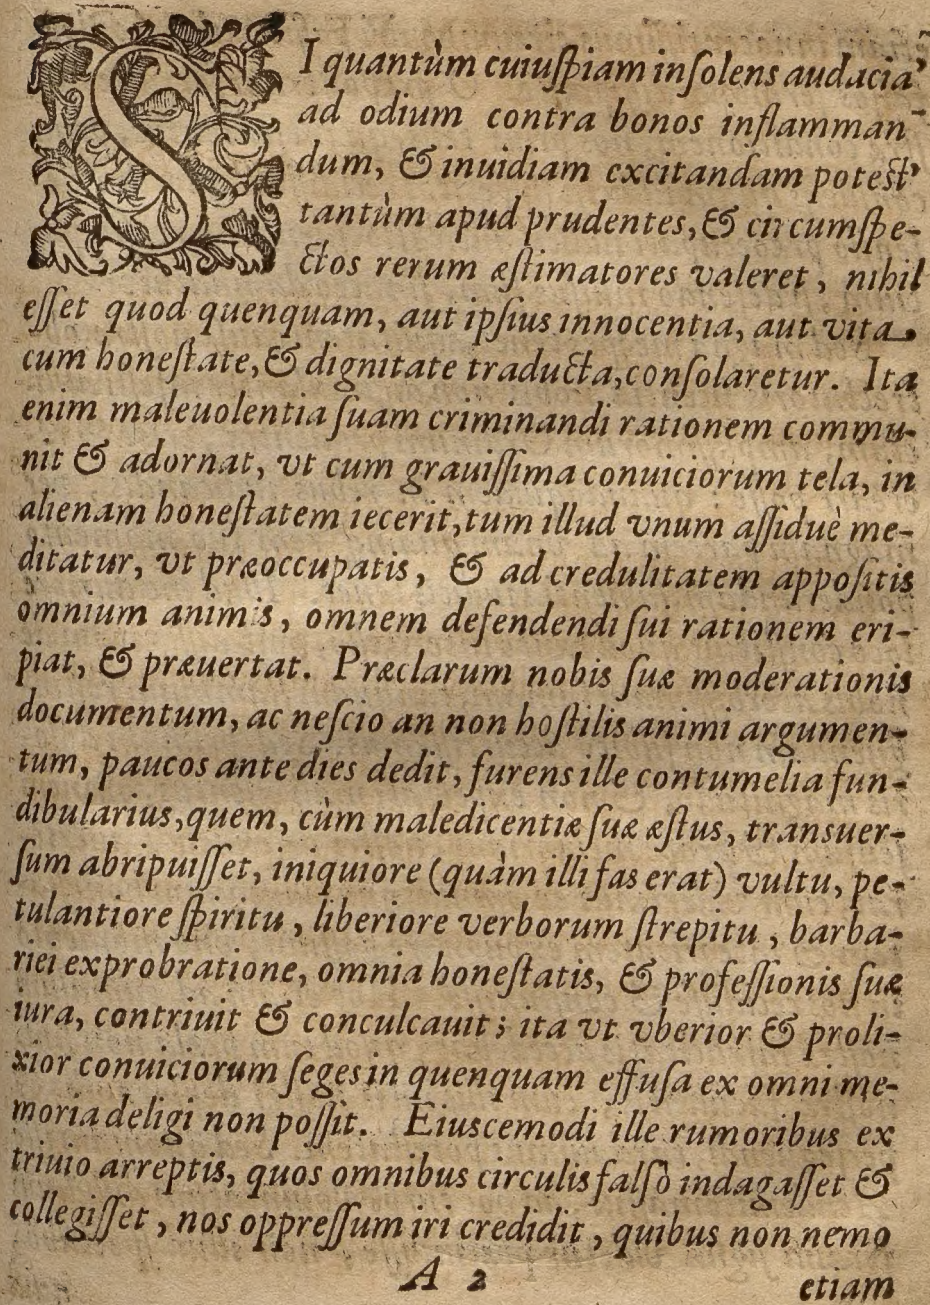 SI quantùm cuiuſpiam inſolens audacia
ad odium contra bonos inflamman-
dum, & inuidiam excitandam poteſt,
tantùm apud prudentes, & circumſpe-
ctos rerum æſtimatores valeret, nihil
eſſet quod quenquam, aut ipſius innocentia, aut vita
cum honeſtate, & dignitate traducta, conſolaretur. Ita
enim maleuolentia ſuam criminandi rationem commu-
nit & adornat, vt cum grauiſſima conuiciorum tela, in
alienam honeſtatem iecerit, tum illud vnum aſſiduè me-
ditatur, vt præoccupatis, & ad credulitatem appoſitis
omnium animis, omnem defendendi ſui rationem eri-
piat, & præuertat. Præclarum nobis ſuæ moderationis
documentum, ac neſcio an non hoſtilis animi argumen-
tum, paucos ante dies dedit, furens ille contumelia fun-
dibularius, quem, cùm maledicentiæ ſuæ æſtus, transuer-
ſum abripuiſſet, iniquiore (quàm illi fas erat) vultu, pe-
tulantiore ſpiritu, liberiore verborum ſtrepitu, barba-
riei exprobratione, omnia honeſtatis, & profeſſionis ſuæ
iura, contriuit & conculcauit; ita vt vberior & proli-
xior conuiciorum ſeges in quenquam effuſa ex omni me-
moria deligi non poſſit. Eiuscemodi ille rumoribus ex
triuio arreptis, quos omnibus circulis falſò indagaſſet &
collegiſſet, nos oppreſſum iri credidit, quibus non nemo
A 2 etiam